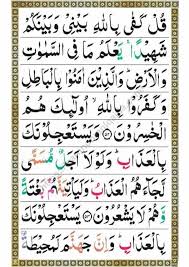 قُلْ كَفٰى بِاللّٰهِ بَيْنِيْ وَبَيْنَكُمْ
شَهِيْدًا ۚ يَعْلَمُ مَا فِي السَّمٰوٰتِ
وَالْاَرْضِ ؕ وَالَّذِيْنَ اٰمَنُوْا بِالْبَاطِلِ
وَكَفَرُوْا بِاللّٰهِ ۙ اُولٰٓئِكَ هُمُ
الْخٰسِرُوْنَ ﴿۵۲﴾ وَيَسْتَعْجِلُوْنَكَ
بِالْعَذَابِ ؕ وَلَوْلَاۤ اَجَلٌ مُّسَمًّى
لَّجَآءَهُمُ الْعَذَابُ ؕ وَلَيَاْتِيَنَّهُمْ بَغْتَةً
وَّهُمْ لَا يَشْعُرُوْنَ ﴿۵۳﴾ يَسْتَعْجِلُوْنَكَ
بِالْعَذَابِ ؕ وَاِنَّ جَهَنَّمَ لَمُحِيْطَةٌۢ